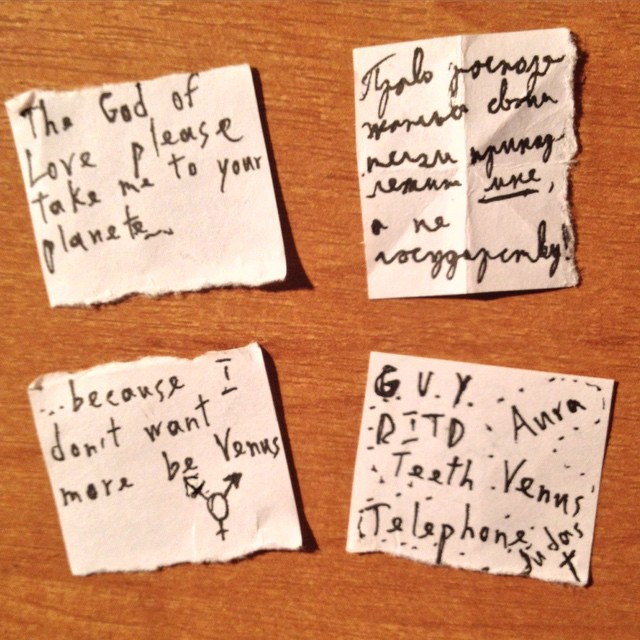 The God of
Love please
take me to your
planete
Право распоря
жаться своим
принад
лежит мне,
а не
государству!
...because I
don't want
more be Venus
G.U.Y.
DITD Aura
Teeth Venus
Telephone Judas